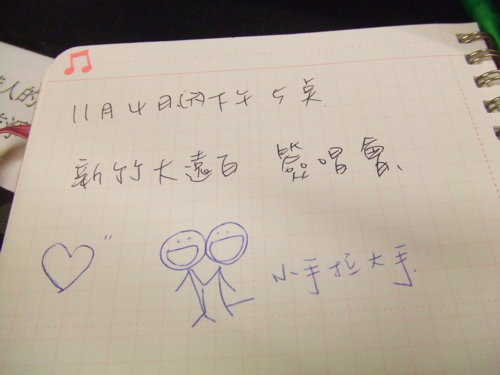 11月4日(丙)下午5點
新竹大遠百 簽唱會
小手拉大手
人的